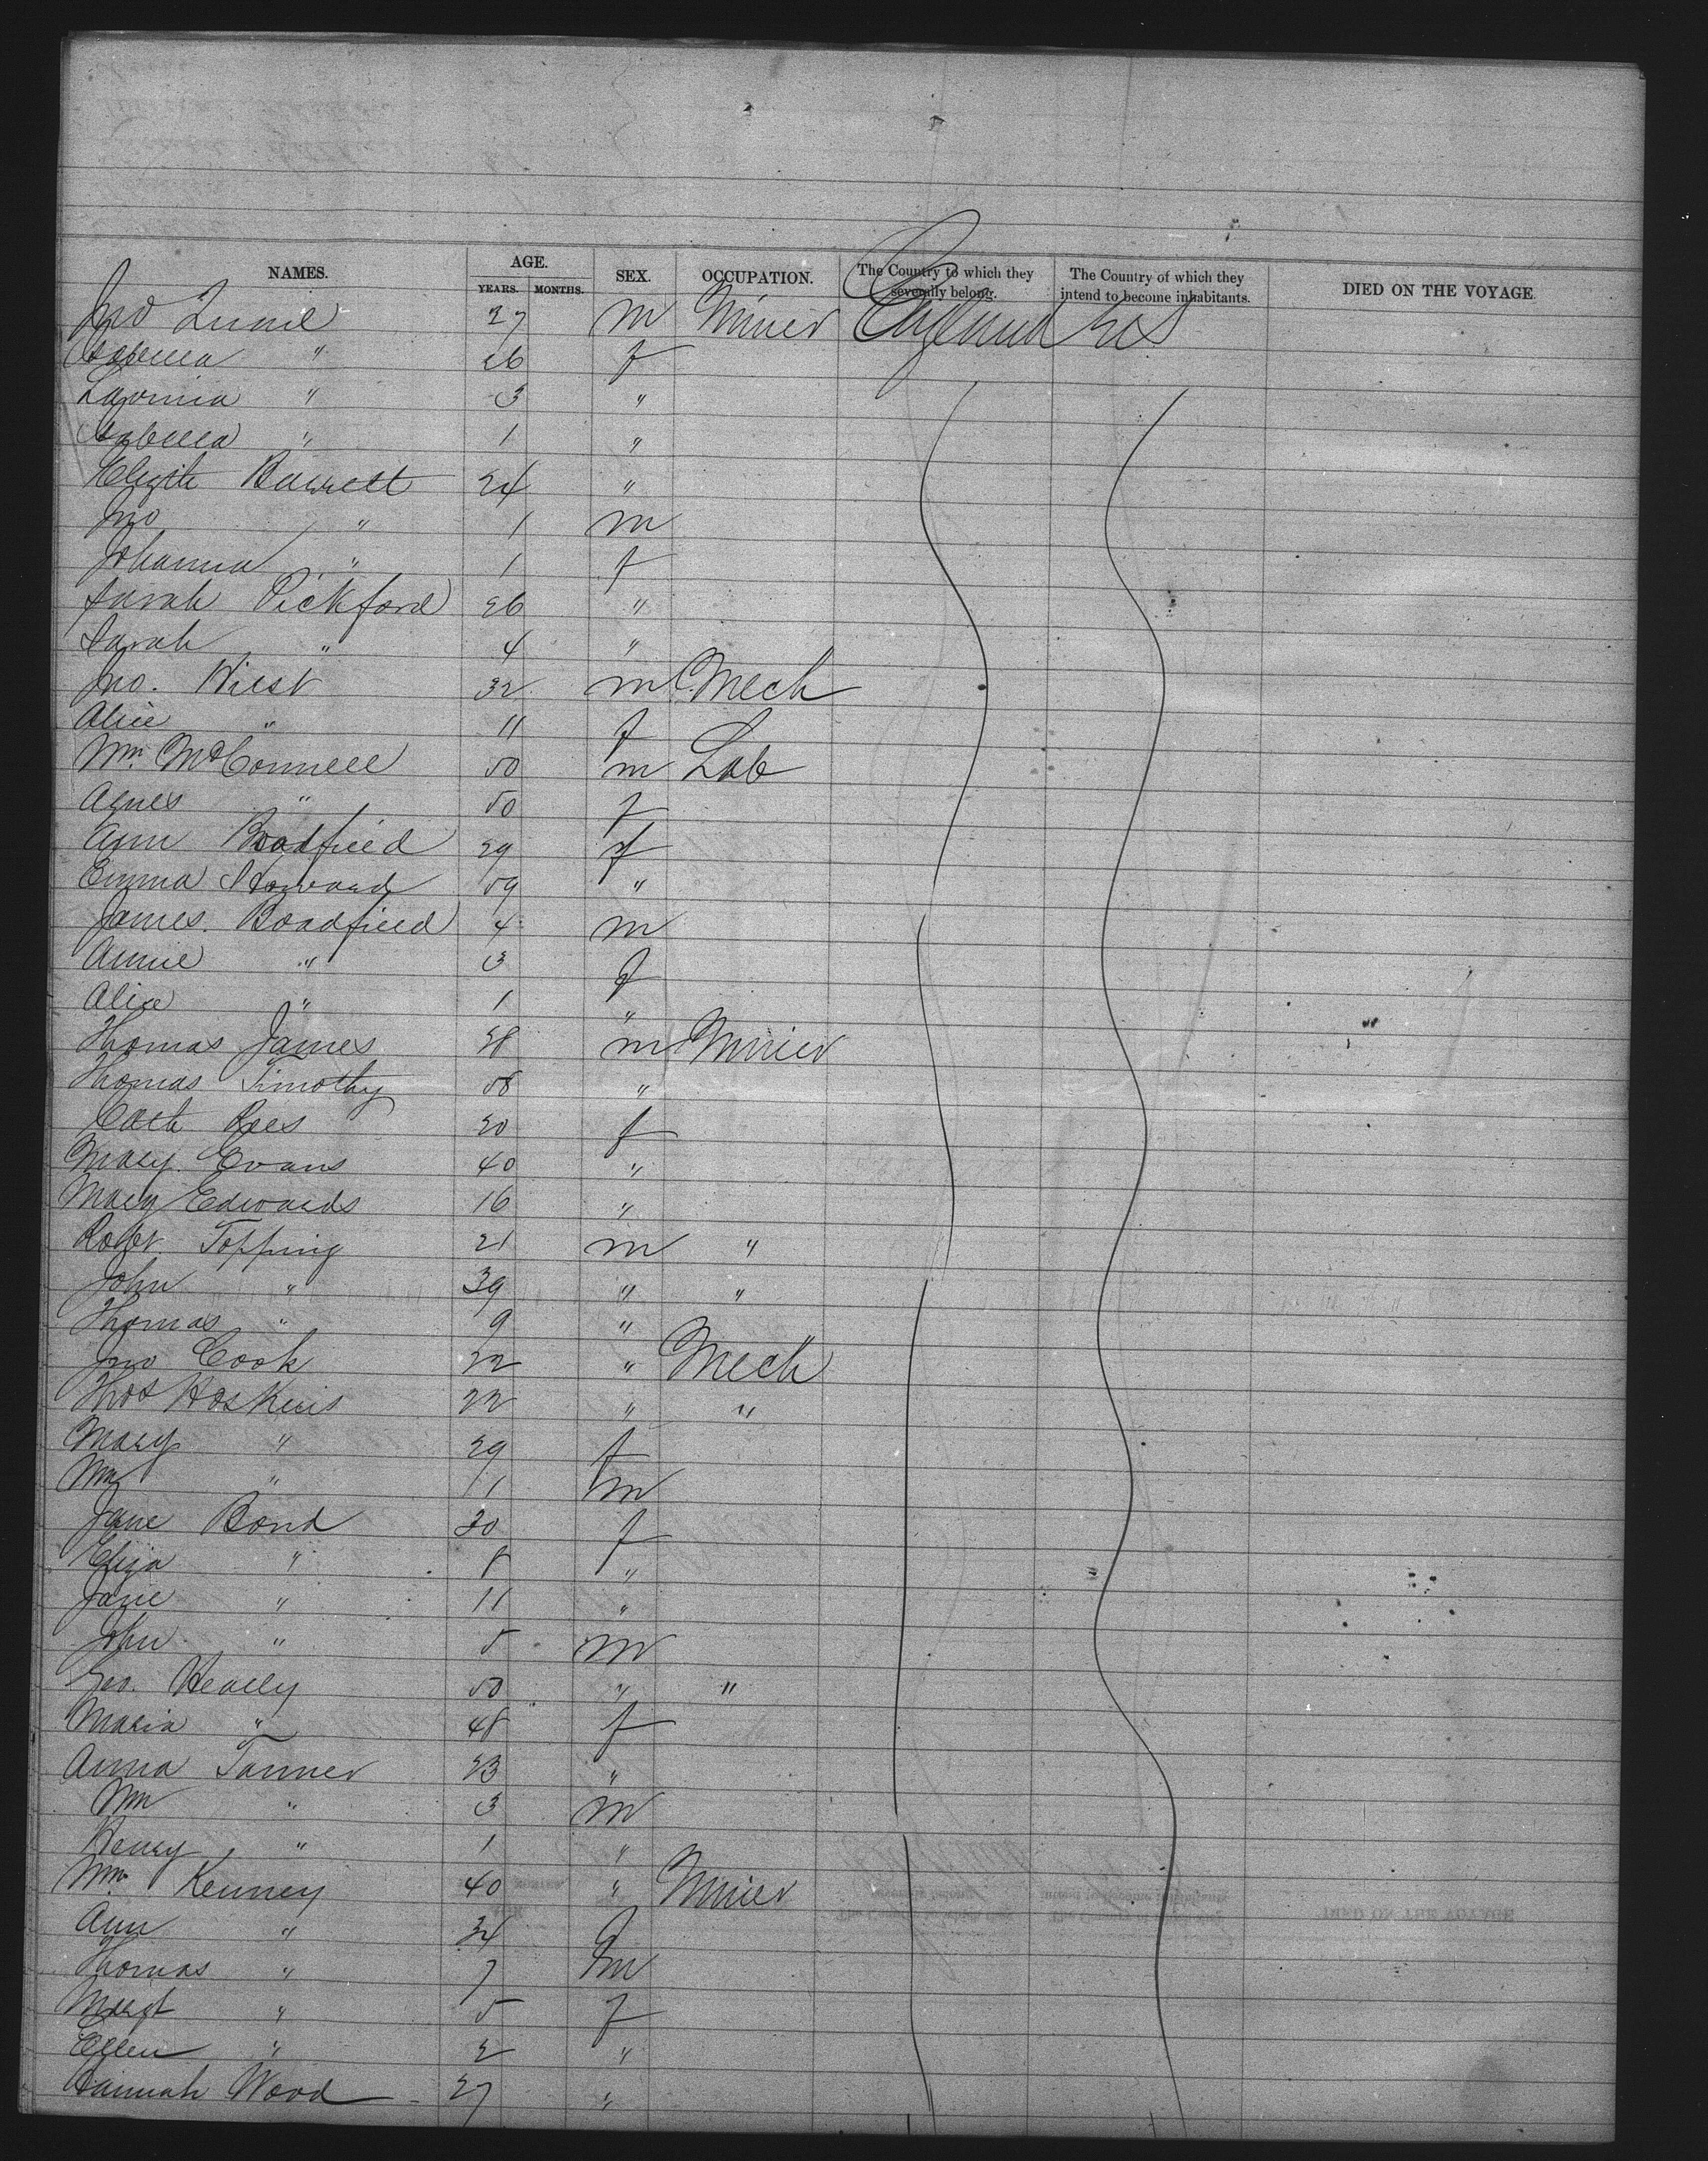 NAMES. AGE. SEX. OCCUPATION. The Country to which they severally belong. The Country of which they intend to become inhabitants. DIED ON THE VOYAGE.
YEARS. MONTHS.
Jno 27 m Miner England U S
Isabella " 26 f
Lavinia " 3 "
Isabella " 1 "
Elizth Barrett 24 "
Jno " 1 m
Johanna " 1 f
Sarah Pickford 26 "
Sarah " 4 "
Jno. Wiest 32 m Mech
Alice " 11 f
Wm. McConnell 50 m Lab
Agnes " 50 f
Ann Broadfield 29 f
Emma Howard 59 "
James. Broadfield 4 m
Annie " 3 f
Alice " 1 "
Thomas James 38 m Miner
Thomas Timothy 58 "
Cath Rees 20 f
Mary. Evans 40 "
Mary Edwards 16 "
Robt. Topping 21 m "
John " 39 " "
Thomas " 9 "
Jno Cook 22 " Mech
Thos Hoskins 22 " "
Mary " 29 f
Wm " 11 m
Jane Bond 30 f
Eliza " 8 "
Jane " 11 "
John " 5 m
Geo. Heally 50 " "
Maria " 48 f
Anna Tanner 23 "
Wm " 3 m
Henry " 1 "
Wm. Kenney 40 " Miner
Ann " 34 f
Thomas " 7 m
Margt " 5 f
Ellen " 2 "
Hannah Wood 27 "